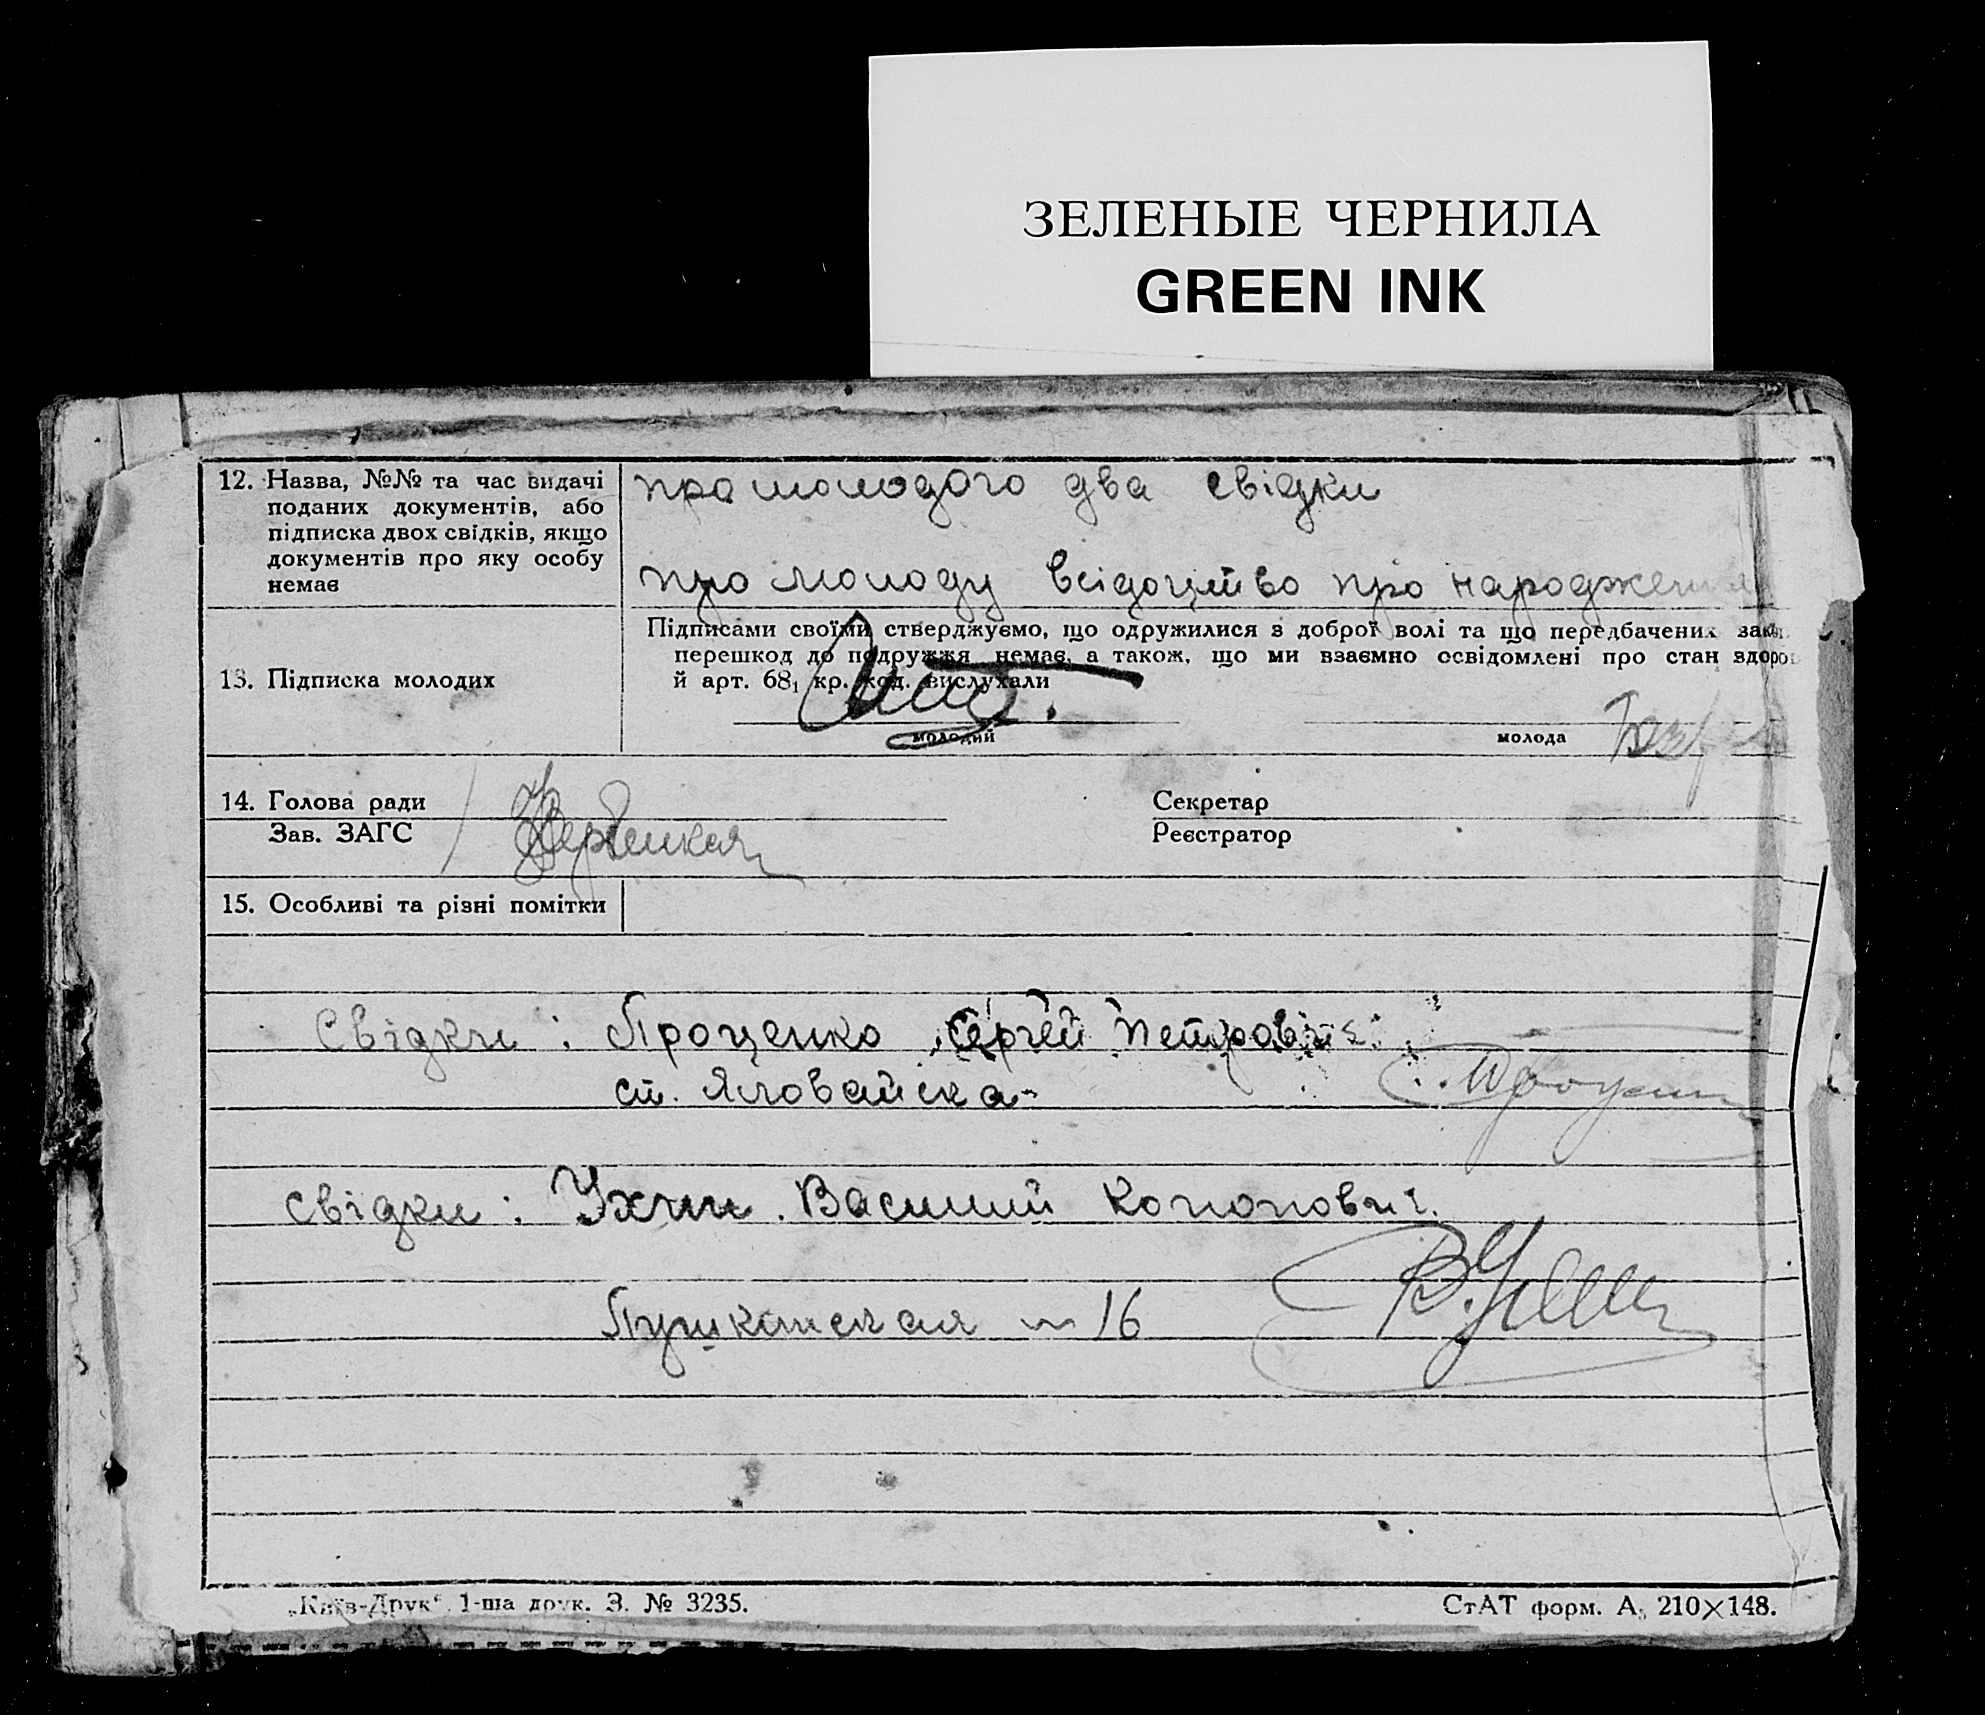 ЗЕЛЕНЫЕ ЧЕРНИЛА
GREEN INK
12. Назва, №№ та час видачі
поданих документів, або
підписка двох свідків, якщо
документів про яку особу
немає
про молодого два свідки
про молоду всідоцтво про народження
13. Підписка молодих
Підписами своїми стверджуємо, що одружилися з доброї волі та що передбачених зак
перешкод до подружжя немає, а також, що ми взаємно освідомлені про стан здоров
й арт. 68₁ кр. код. вислухали
молодий
молода
14. Голова ради
Секретар
Зав. ЗАГС
Реєстратор
15. Особливі та різні помітки
Свідки: Проценко Сергей Петрович
ст. Яловайска
свідки: Ухин Василий Кононович.
В. Ухин
Пушкинская 16
„Київ-Друк“ 1-ша друк. З. № 3235.
СтАТ форм. А₅ 210×148.